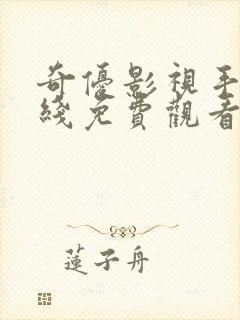 奇優影視手
綫免費觀看
蓮子舟